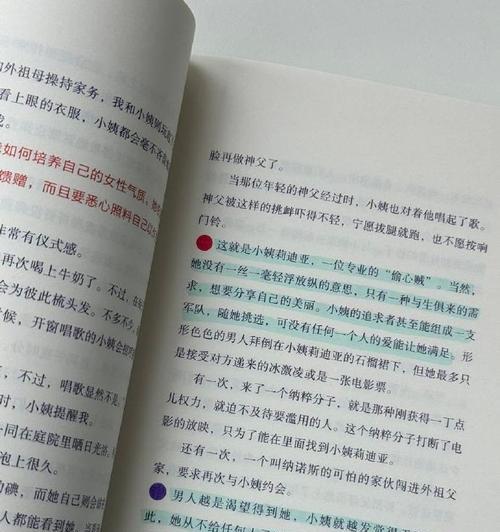 外祖母操持家务，我和小姨则玩
看上眼的衣服，小姨都会毫不吝
我。
如何培养自己的女性气质。她
馈赠，而且要悉心照料自己
非常有仪式感。
再次喝上牛奶了。不过，在
会为彼此梳头发。不多不少，
时候，开窗唱歌的小姨会招
，不过，唱歌显然不是
，小姨提醒我。
一同在庭院里晒日光浴
泡上很久。
的碘，而她自己则会
都能看到她。当
脸再做神父了。
当那位年轻的神父经过时，小姨也对着他唱起了歌。
神父被这样的挑衅吓得不轻，宁愿拔腿就跑，也不愿按响
门铃。
这就是小姨莉迪亚，一位专业的“偷心贼”。当然，
她没有一丝一毫轻浮放纵的意思，只有一种与生俱来的需
求，想要分享自己的美丽。小姨的追求者甚至能组成一支
军队，随她挑选，可没有任何一个人的爱能让她满足。形
形色色的男人拜倒在小姨莉迪亚的石榴裙下，但她最多只
是接受对方递来的冰激凌或是一张电影票。
有一次，来了一个纳粹分子，就是那种刚获得一丁点
儿权力，就迫不及待要滥用的人。这个纳粹分子打断了电
影的放映，只为了能在里面找到小姨莉迪亚。
还有一次，一个叫纳诺斯的可怜的家伙闯进外祖父
家，要求再次与小姨约会。
男人越是渴望得到她，小姨就越发觉得
此，她从不给任何